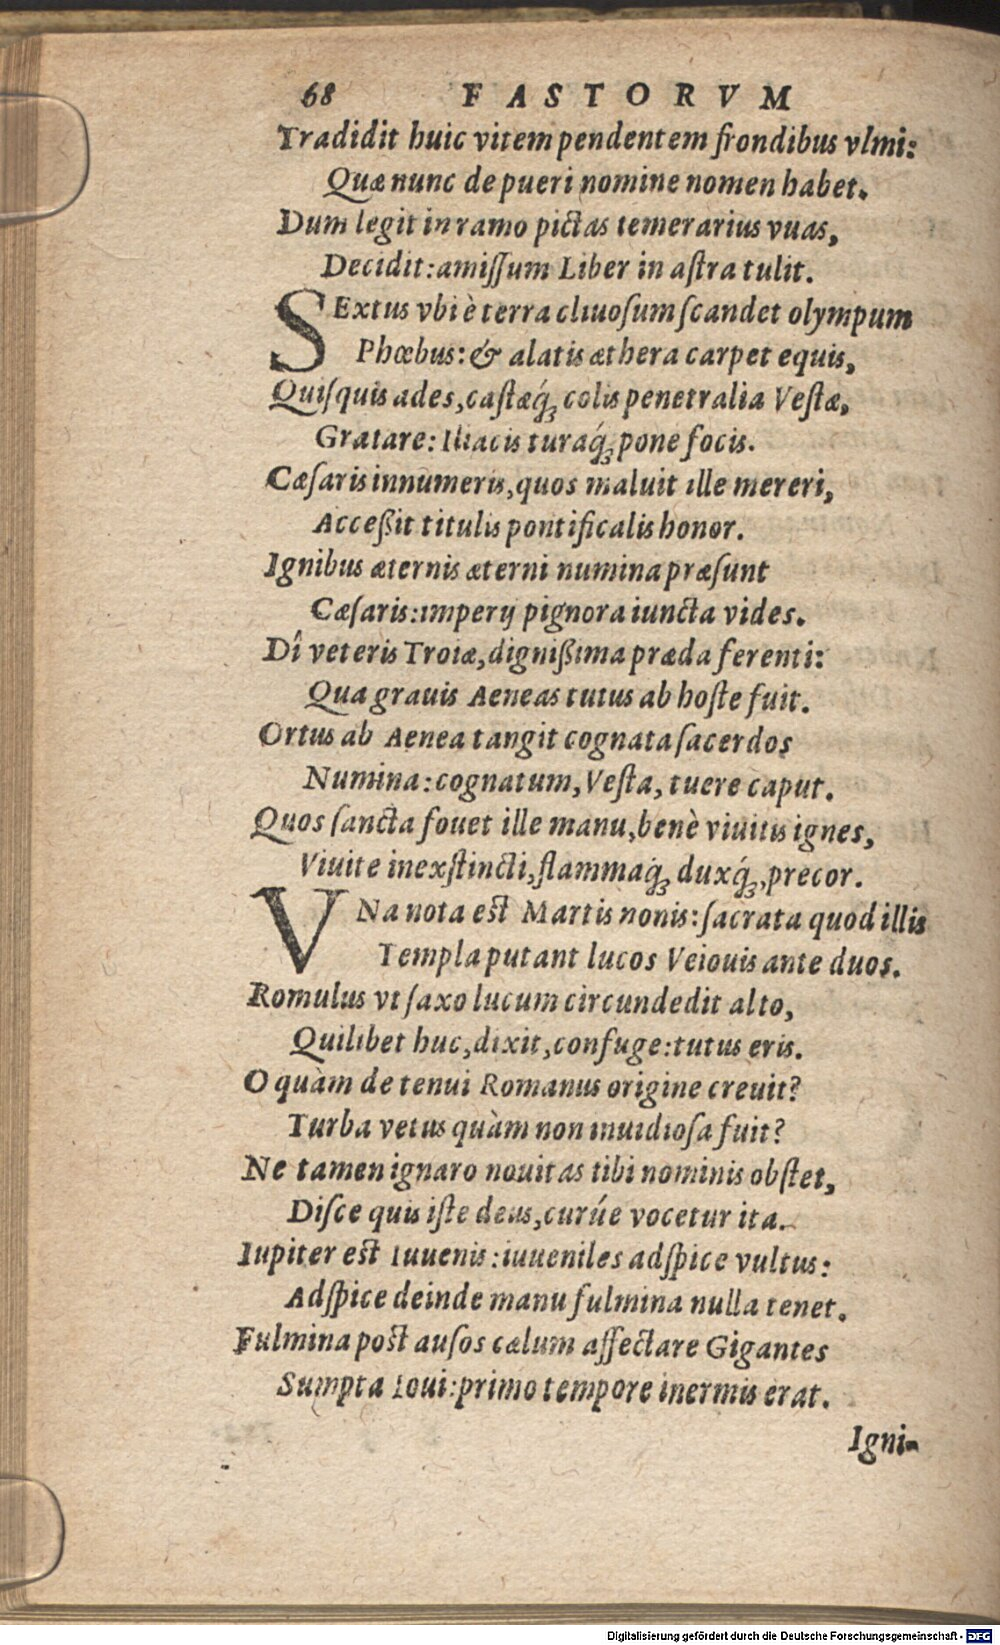 68 FASTORVM
Tradidit huic vitem pendentem frondibus vlmi:
Quæ nunc de pueri nomine nomen habet.
Dum legit in ramo pictas temerarius vuas,
Decidit: amiſſum Liber in aſtra tulit.
SExtus vbi è terra cliuoſum ſcandet olympum
Phœbus: & alatis æthera carpet equis,
Quiſquis ades, caſtæq́ꝫ colis penetralia Veſtæ,
Gratare: Iliacis turaq́ꝫ pone focis.
Cæſaris innumeris, quos maluit ille mereri,
Acceßit titulis pontificalis honor.
Ignibus æternis æterni numina præſunt
Cæſaris: imperij pignora iuncta vides.
Dî veteris Troiæ, dignißima præda ferenti:
Qua grauis Aeneas tutus ab hoſte fuit.
Ortus ab Aenea tangit cognata ſacerdos
Numina: cognatum, Veſta, tuere caput.
Quos ſancta fouet ille manu, benè viuitis ignes,
Viuite inexſtincti, flammaq́ꝫ duxq́ꝫ, precor.
VNa nota eſt Martis nonis: ſacrata quod illis
Templa putant lucos Veiouis ante duos.
Romulus vt ſaxo lucum circundedit alto,
Quilibet huc, dixit, confuge: tutus eris.
O quàm de tenui Romanus origine creuit?
Turba vetus quàm non inuidioſa fuit?
Ne tamen ignaro nouitas tibi nominis obſtet,
Diſce quis iſte deus, curúe vocetur ita.
Iupiter eſt Iuuenis: iuueniles adſpice vultus:
Adſpice deinde manu fulmina nulla tenet.
Fulmina poſt auſos cælum affectare Gigantes
Sumpta Ioui: primo tempore inermis erat.
Igni-
Digitalisierung gefördert durch die Deutsche Forschungsgemeinschaft - DFG